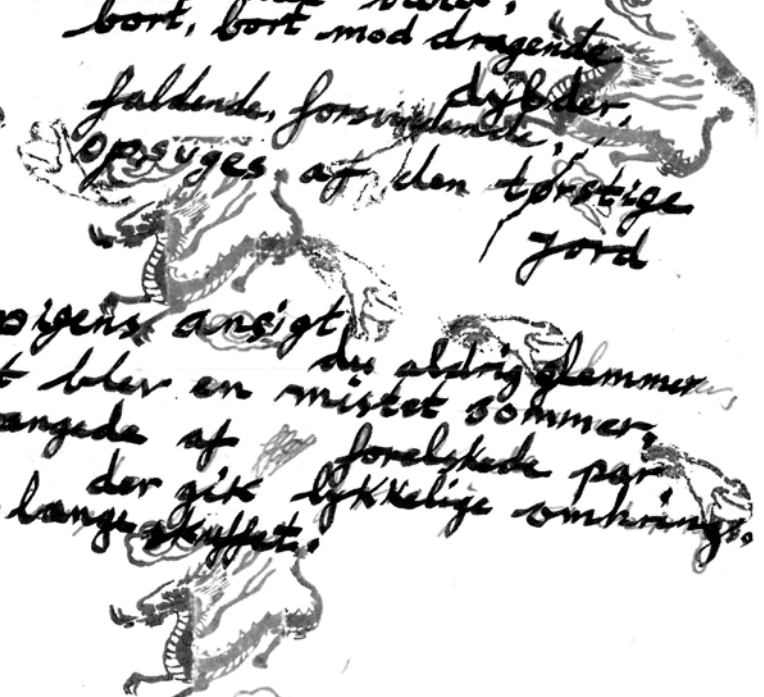 bort, bort mod dragende
dybder,
faldende, forsvindende,
opsuges af den tørstige
jord
pigens ansigt
du aldrig glemmer
t blev en mistet sommer,
angede af forelskede par
der gik lykkelige omkring,
længe skuffet.